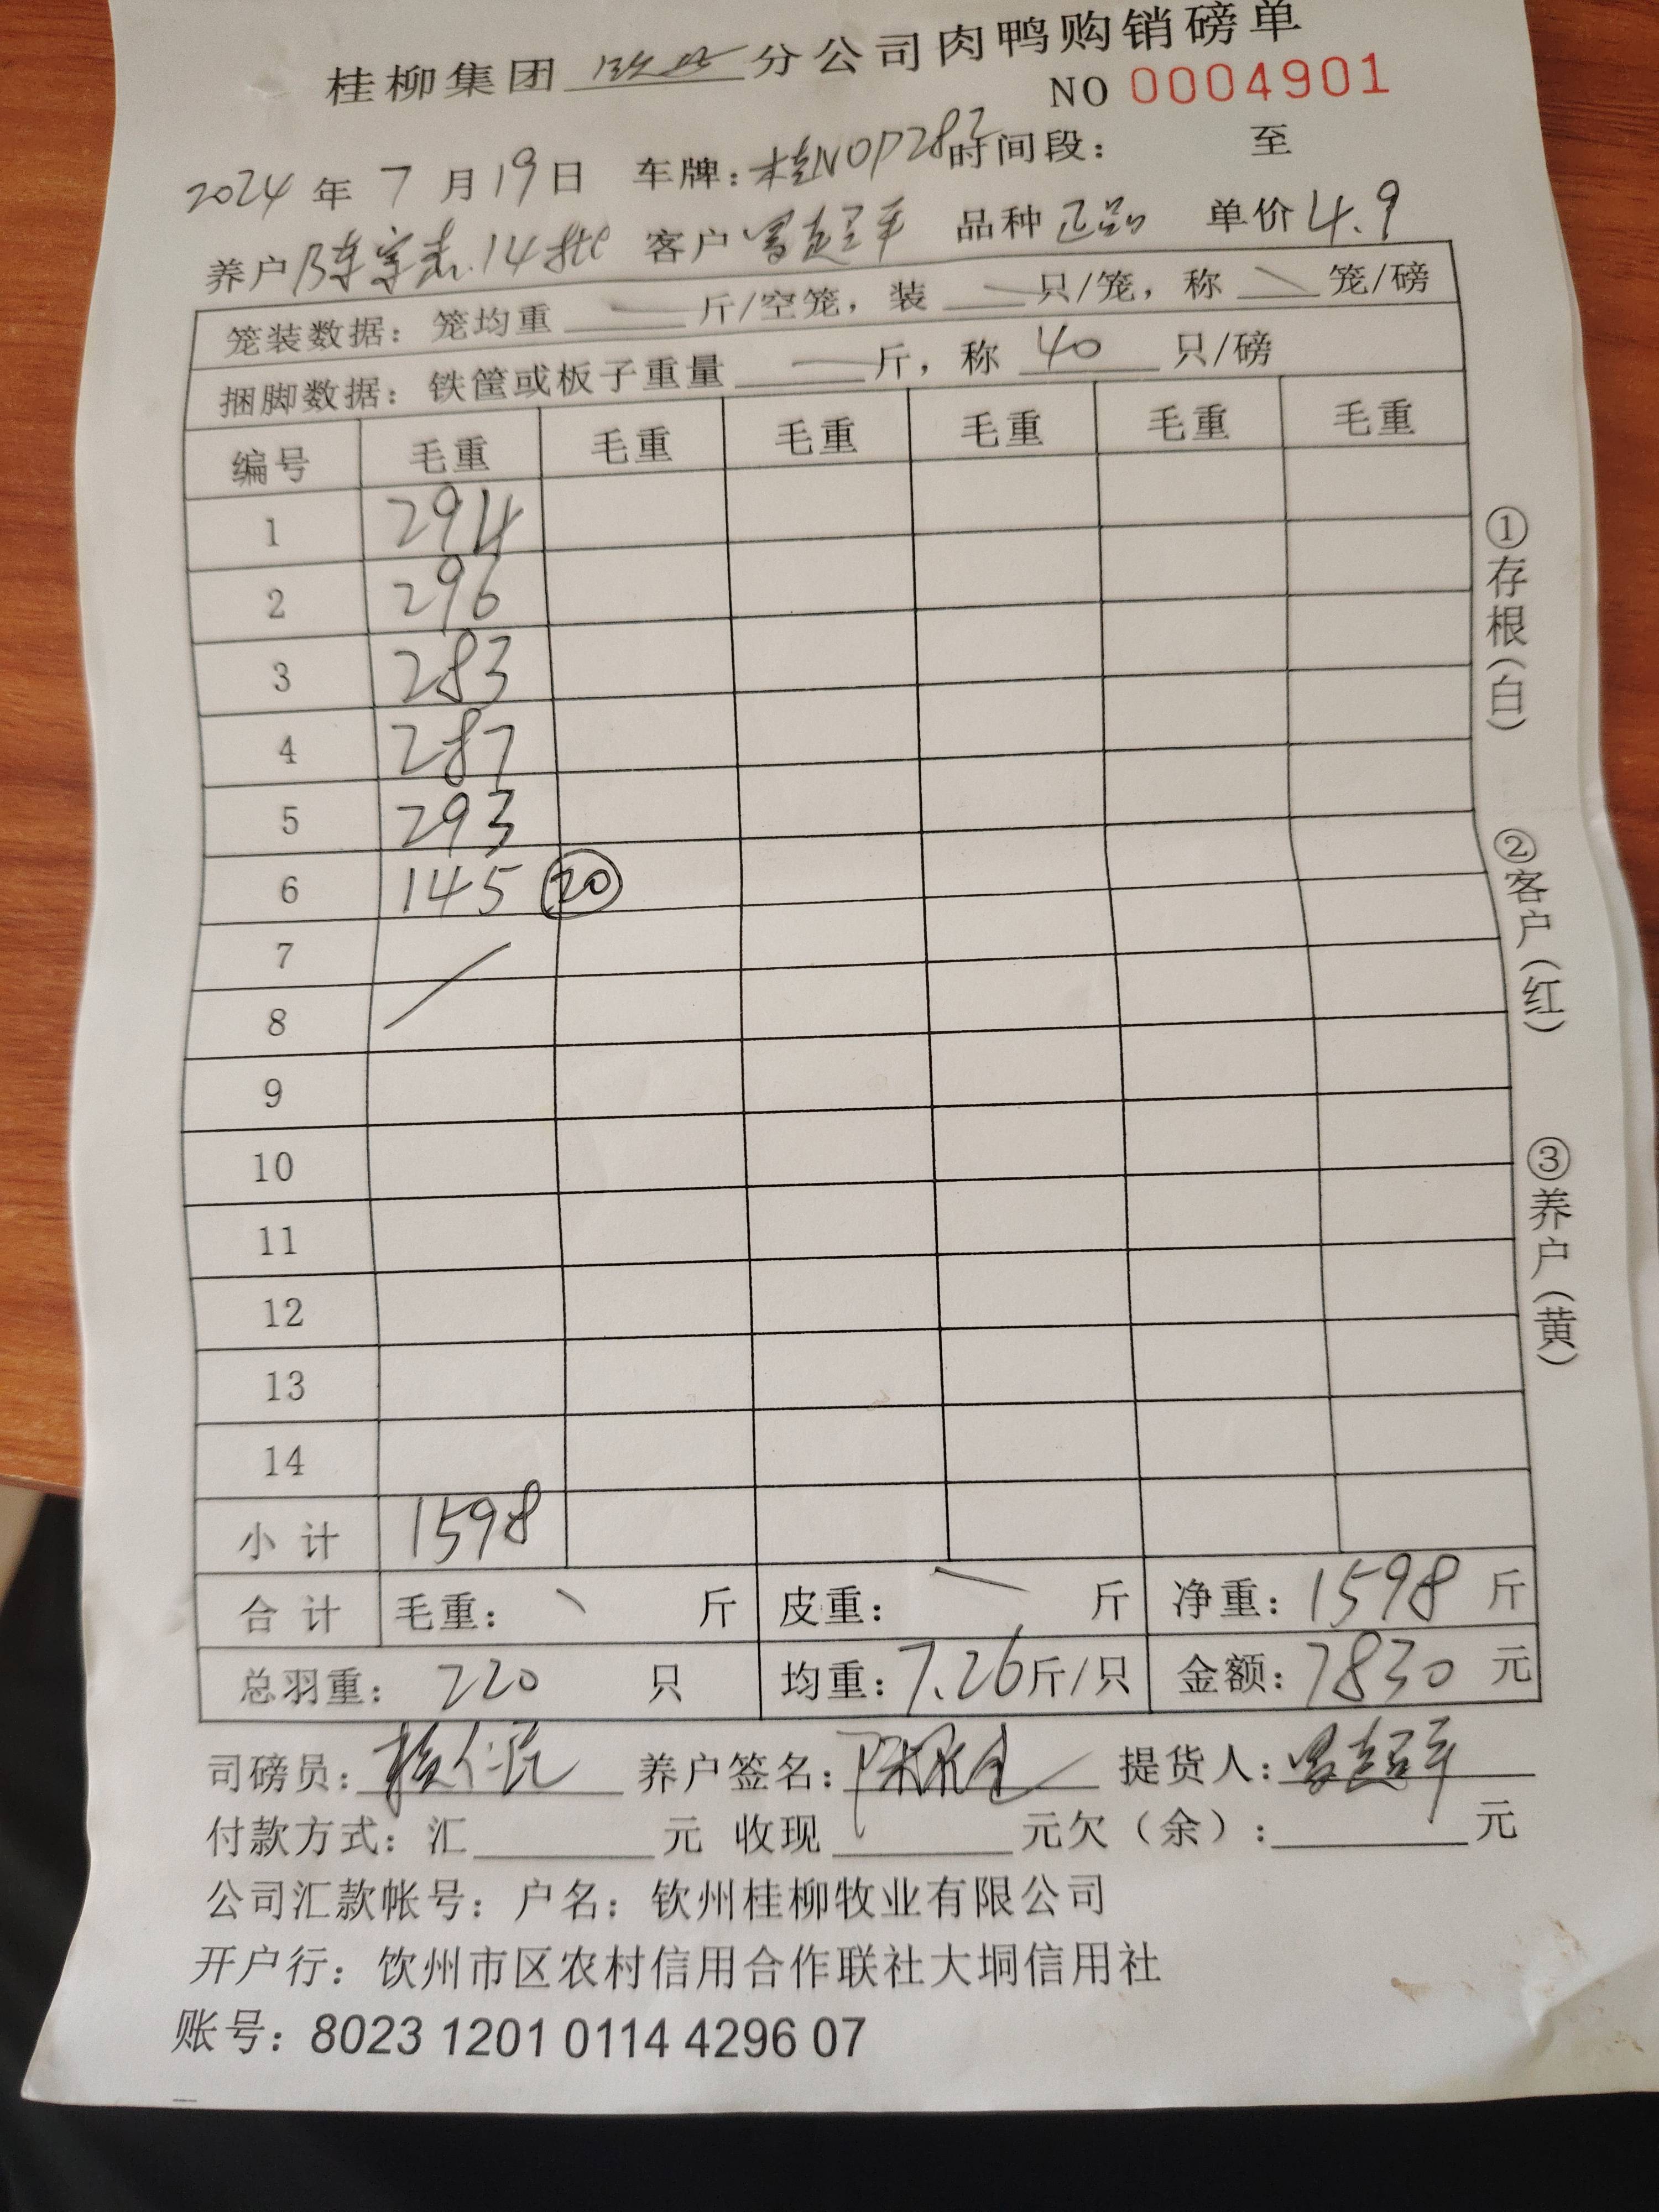 桂柳集团 分公司肉鸭购销磅单
NO 0004901
2024 年 7 月 19 日 车牌：桂N0P282 时间段： 至
养户 陈宗志.14批 客户 罗超平 品种 正品 单价 4.9
笼装数据：笼均重 斤/空笼，装 只/笼，称 笼/磅
捆脚数据：铁筐或板子重量 斤，称 40 只/磅
编号 毛重 毛重 毛重 毛重 毛重 毛重
1 294
2 296
3 283
4 287
5 293
6 145 20
7
8
9
10
11
12
13
14
小计 1598
合计 毛重： 斤 皮重： 斤 净重：1598 斤
总羽重：220 只 均重：7.26 斤/只 金额：7830 元
司磅员： 养户签名： 提货人：罗超平
付款方式：汇 元 收现 元欠（余）： 元
公司汇款帐号：户名：钦州桂柳牧业有限公司
开户行：饮州市区农村信用合作联社大垌信用社
账号：8023 1201 0114 4296 07
①存根（白）
②客户（红）
③养户（黄）